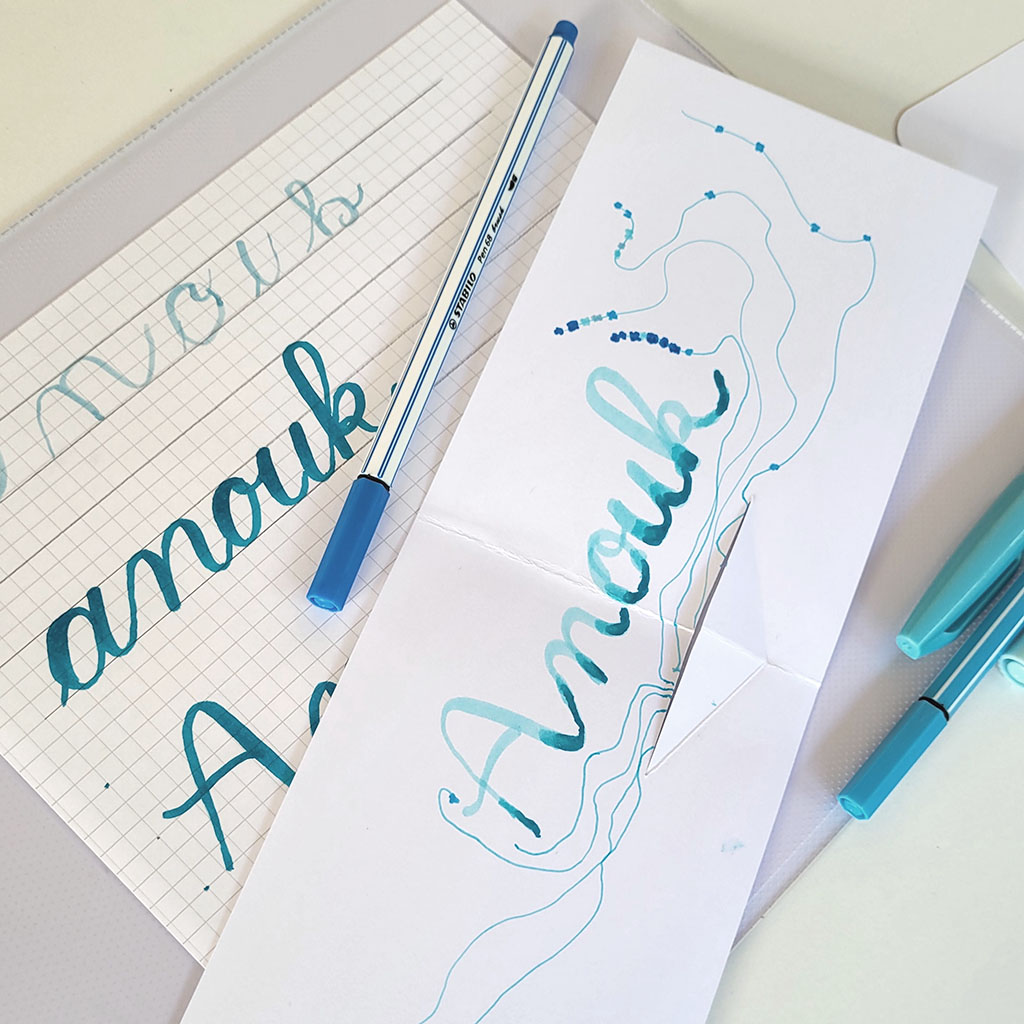 anouk
anouk
A
STABILO Pen 68 brush
Anouk